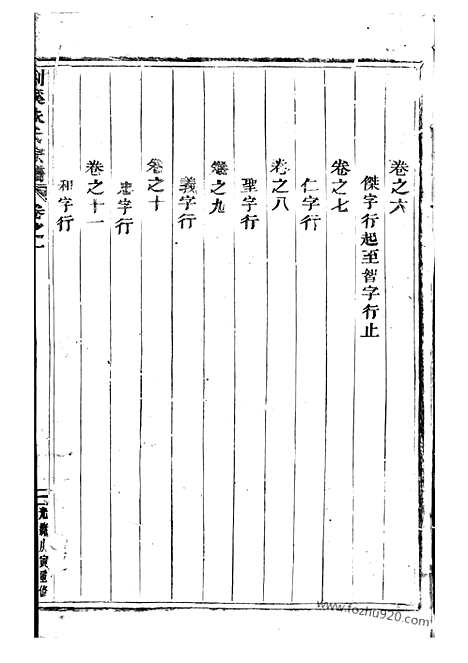 卷之六
傑字行起至智字行止
卷之七
仁字行
卷之八
聖字行
卷之九
義字行
卷之十
忠字行
卷之十一
和字行
氏宗譜 卷之一
二 光緒戊寅重修
www.fozhu920.com